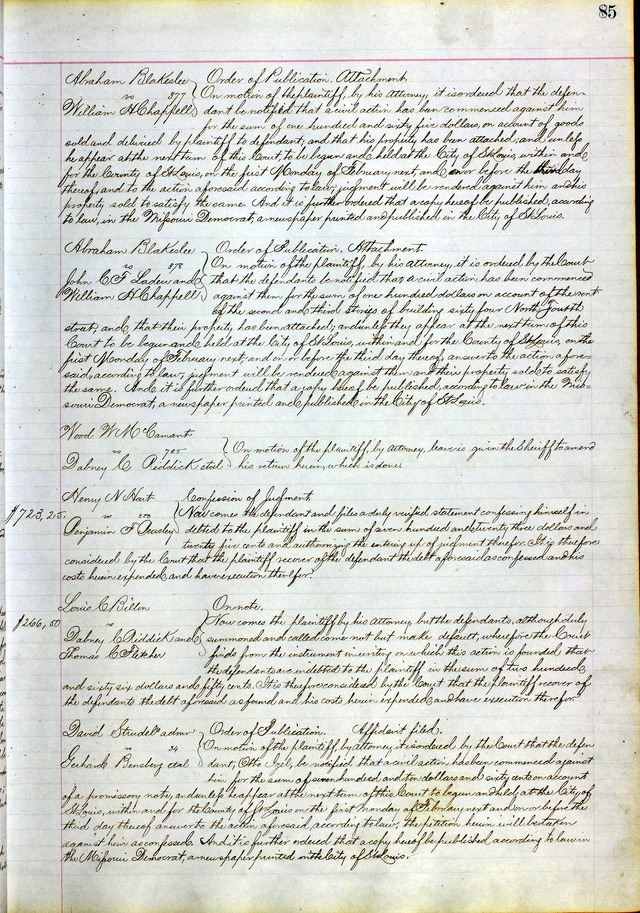 85
Abraham Blakeslee Order of Publication. Attachment
vs 377 On motion of the plaintiff, by his attorney, it is ordered that the defen-
William H Chappell dant be notified that a civil action has been commenced against him
for the sum of one hundred and sixty five dollars, on account of goods
sold and delivered by plaintiff to defendant, and that his property has been attached, and unless
he appear at the next term of this Court, to be begun and held at the City of St Louis, within and
for the County of St Louis, on the first Monday of February next, and on or before the third day
thereof, and to the action aforesaid according to law, judgment will be rendered against him and his
property sold to satisfy the same. And it is further ordered that a copy hereof be published, according
to law, in the Missouri Democrat, a newspaper printed and published in the City of St Louis.
Abraham Blakeslee Order of Publication. Attachment.
vs 378 On motion of the plaintiff by his attorney, it is ordered by the Court
John C F Ladew and that the defendants be notified that a civil action has been commenced
William H Chappell against them for the sum of one hundred dollars on account of the rent
of the second and third stories of building sixty four North Fourth
street, and that their property has been attached, and unless they appear at the next term of this
Court to be begun and held at the City of St Louis, within and for the County of St Louis, on the
first Monday of February next, and on or before the third day thereof, answer to the action afore-
said, according to law, judgment will be rendered against them and their property sold to satisfy
the same. And it is further ordered that a copy hereof be published, according to law in the Mis-
souri Democrat, a newspaper printed and published in the City of St Louis.
Wood W McCamant
vs 705 On motion of the plaintiff, by attorney, leave is given the Sheriff to amend
Dabney C Riddick et al his return herein, which is done.
Henry N Hart Confession of Judgment
$723,25. vs Now comes the defendant and files a duly verified statement confessing himself in-
Benjamin F debted to the plaintiff in the sum of seven hundred and twenty three dollars and
twenty five cents and authorizing the entering up of judgment therefor. It is therefore
considered by the Court that the plaintiff recover of the defendant the debt aforesaid as confessed and his
costs herein expended, and have execution therefor.
Louis C On note.
$266,50 vs Now comes the plaintiff by his attorney, but the defendants, although duly
Dabney C Riddick and summoned and called come not but make default, wherefore the Court
Thomas C Fletcher finds from the instrument in writing on which this action is founded that
the defendants are indebted to the plaintiff in the sum of two hundred
and sixty six dollars and fifty cents. It is therefore considered by the Court that the plaintiff recover of
the defendants the debt aforesaid as found and his costs herein expended and have execution therefor.
David admr Order of Publication. Affidavit filed.
vs 34 On motion of the plaintiff by attorney, it is ordered by the Court that the defen-
Gerhard Bensberg et al dant, Otto be notified that a civil action has been commenced against
him for the sum of seven hundred and ten dollars and sixty cents on account
of a promissory note, and unless he appear at the next term of this Court to be begun and held at the City of
St Louis, within and for the County of St Louis on the first Monday of February next and on or before the
third day thereof answer to the action aforesaid, according to law, the petition herein will be taken
against him as confessed. And it is further ordered that a copy hereof be published, according to law in
the Missouri Democrat, a newspaper printed in the City of St Louis.